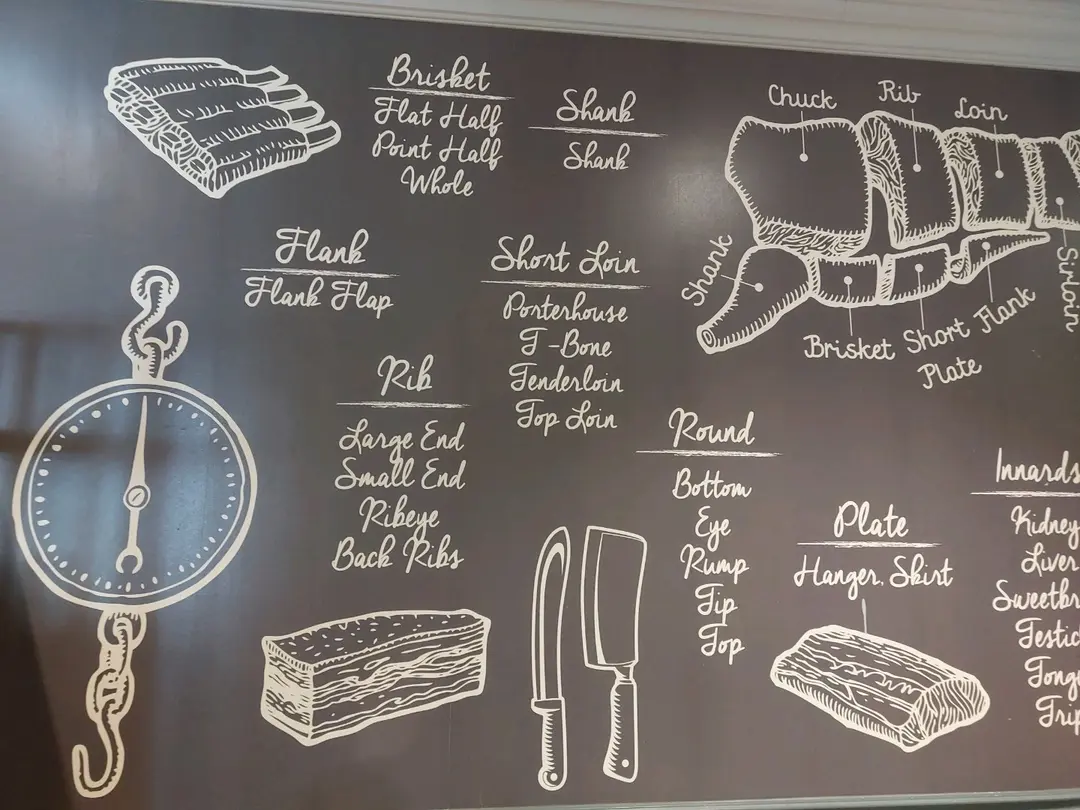 Brisket
Flat Half
Point Half
Whole
Shank
Shank
Chuck
Rib
Loin
Shank
Brisket
Short
Plate
Flank
Sirloin
Flank
Flank Flap
Short Loin
Porterhouse
T-Bone
Tenderloin
Top Loin
Rib
Large End
Small End
Ribeye
Back Ribs
Round
Bottom
Eye
Rump
Tip
Top
Plate
Hanger, Skirt
Innards
Kidney
Liver
Sweetbr
Testic
Tong
Trip